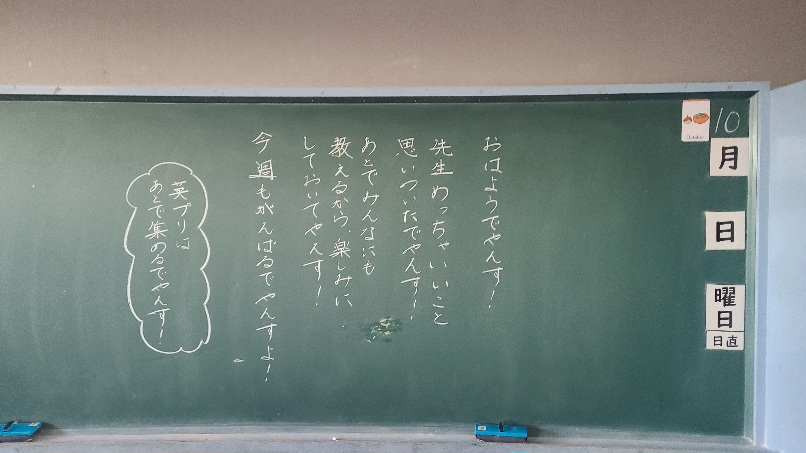 10
月
日
曜日
日直
October
おはようでやんす!
先生めっちゃいいこと
思いついたでやんす!
あとでみんなにも
教えるから、楽しみに
しておいてやんす!
今週もがんばるでやんすよ!
英プリは
あとで集めるでやんす!